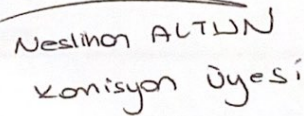 Neslihan ALTUN
Komisyon Üyesi